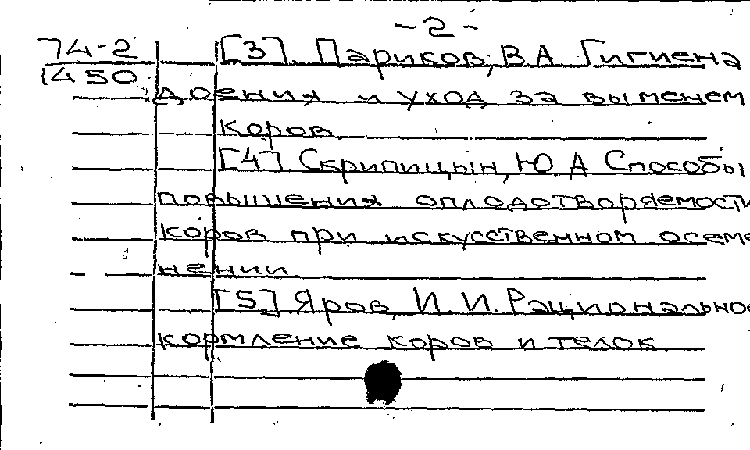 -2-
74-2 [3] Париков, В.А Гигиена
1450
доения и уход за выменем
коров
[4] Скрипицын, Ю.А Способы
повышения оплодотворяемости
коров при искусственном осеме
нении
[5] Яров, И.И. Рациональное
кормление коров и телок